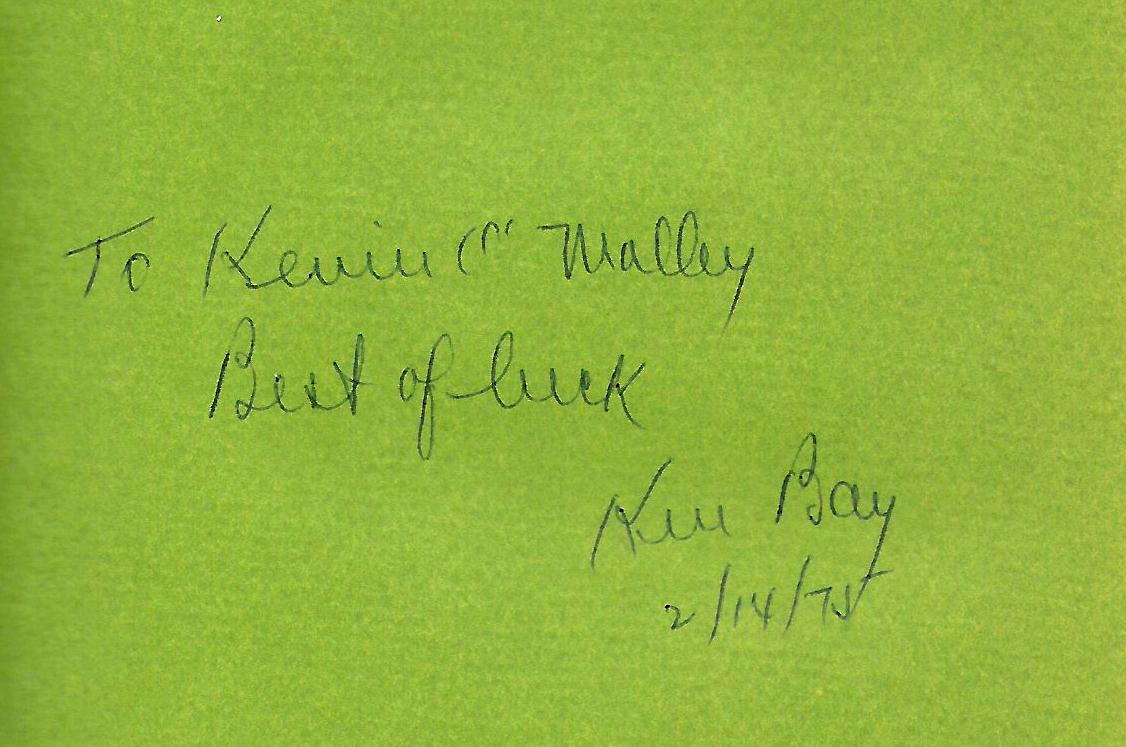 To Kevin O'Malley
Best of luck
Ken Bay
2/14/75